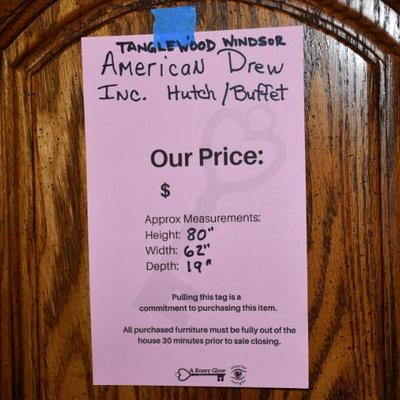 TANGLEWOOD WINDSOR
AMERICAN DREW
INC. HUTCH/BUFFET
Our Price:
$
Approx Measurements:
Height: 80"
Width: 62"
Depth: 19"
Pulling this tag is a
commitment to purchasing this item.
All purchased furniture must be fully out of the
house 30 minutes prior to sale closing.
A Rosey Glow